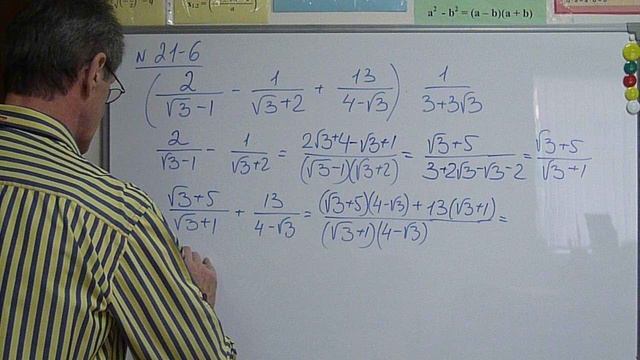 a² - b² = (a – b)(a + b)
N 21-6
(2/(√3-1) - 1/(√3+2) + 13/(4-√3)) · 1/(3+3√3)
2/(√3-1) - 1/(√3+2) = (2√3+4-√3+1)/((√3-1)(√3+2)) = (√3+5)/(3+2√3-√3-2) = (√3+5)/(√3+1)
(√3+5)/(√3+1) + 13/(4-√3) = ((√3+5)(4-√3)+13(√3+1))/((√3+1)(4-√3)) =